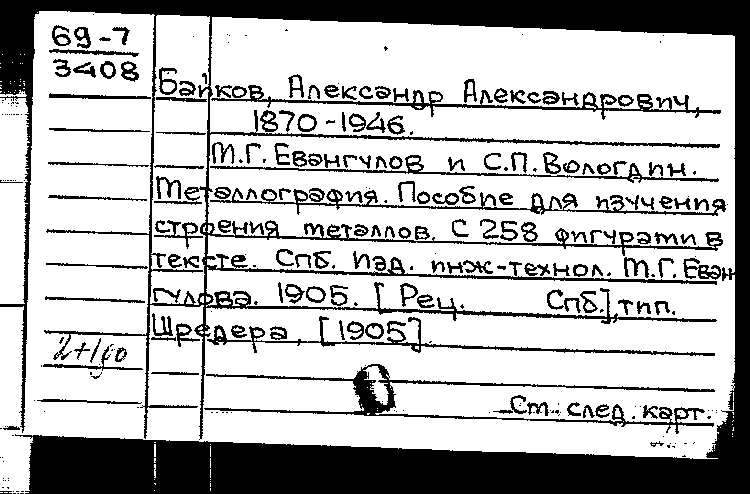 69-7
3408
Байков, Александр Александрович,
1870-1946.
М.Г. Евангулов и С.П. Вологдин.
Металлография. Пособие для изучения
строения металлов. С 258 фигурами в
тексте. Спб. Изд. инж-технол. М.Г. Еван
гулова. 1905. [Рец. Спб.], тип.
Шредера, [1905]
Ст. след. карт.